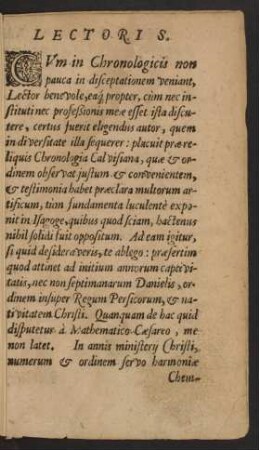 LECTORI S.
CVm in Chronologicis non
pauca in disceptationem veniant,
Lector benevole, eaq́ propter, cùm nec in-
stituti nec professionis meæ esset ista discu-
tere, certus fuerit eligendus autor, quem
in diversitate illa sequerer: placuit præ re-
liquis Chronologia Calvisiana, quæ & or-
dinem observat justum & convenientem,
& testimonia habet præclara multorum ar-
tificum, tùm fundamenta luculentè expo-
nit in Isagoge, quibus quod sciam, hactenus
nihil solidi fuit oppositum. Ad eam igitur,
si quid desideraveris, te ablego: præsertim
quod attinet ad initium annorum captivi-
tatis, nec non septimanarum Danielis, or-
dinem insuper Regum Persicorum, & na-
tivitatem Christi. Quanquam de hac quid
disputetur à Mathematico Cæsareo, me
non latet. In annis ministerij Christi,
numerum & ordinem servo harmoniæ
Chem-